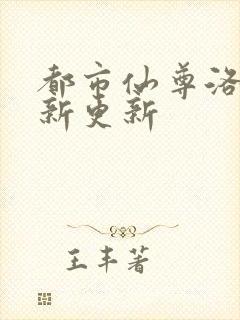 都市仙尊洛
新更新
王丰著